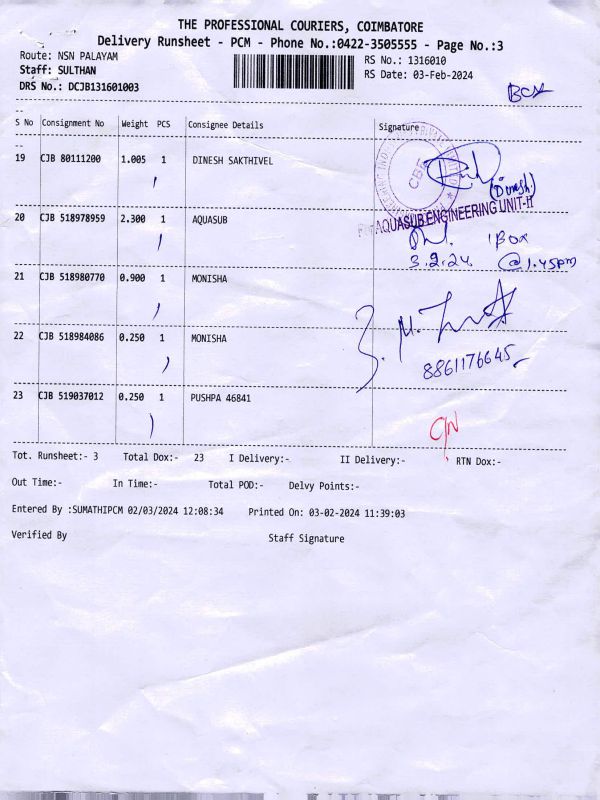 THE PROFESSIONAL COURIERS, COIMBATORE
Delivery Runsheet - PCM - Phone No.:0422-3505555 - Page No.:3
Route: NSN PALAYAM
RS No.: 1316010
Staff: SULTHAN
RS Date: 03-Feb-2024
DRS No.: DCJB131601003
BOX
S No Consignment No Weight PCS Consignee Details Signature
19 CJB 80111200 1.005 1 DINESH SAKTHIVEL
CBE
(Dinesh)
20 CJB 518978959 2.300 1 AQUASUB
For AQUASUB ENGINEERING UNIT-II
1 Box
3.2.24. @1.45pm
21 CJB 518980770 0.900 1 MONISHA
22 CJB 518984086 0.250 1 MONISHA
8861176645
23 CJB 519037012 0.250 1 PUSHPA 46841
Tot. Runsheet:- 3 Total Dox:- 23 I Delivery:- II Delivery:- RTN Dox:-
Out Time:- In Time:- Total POD:- Delvy Points:-
Entered By :SUMATHIPCM 02/03/2024 12:08:34 Printed On: 03-02-2024 11:39:03
Verified By Staff Signature